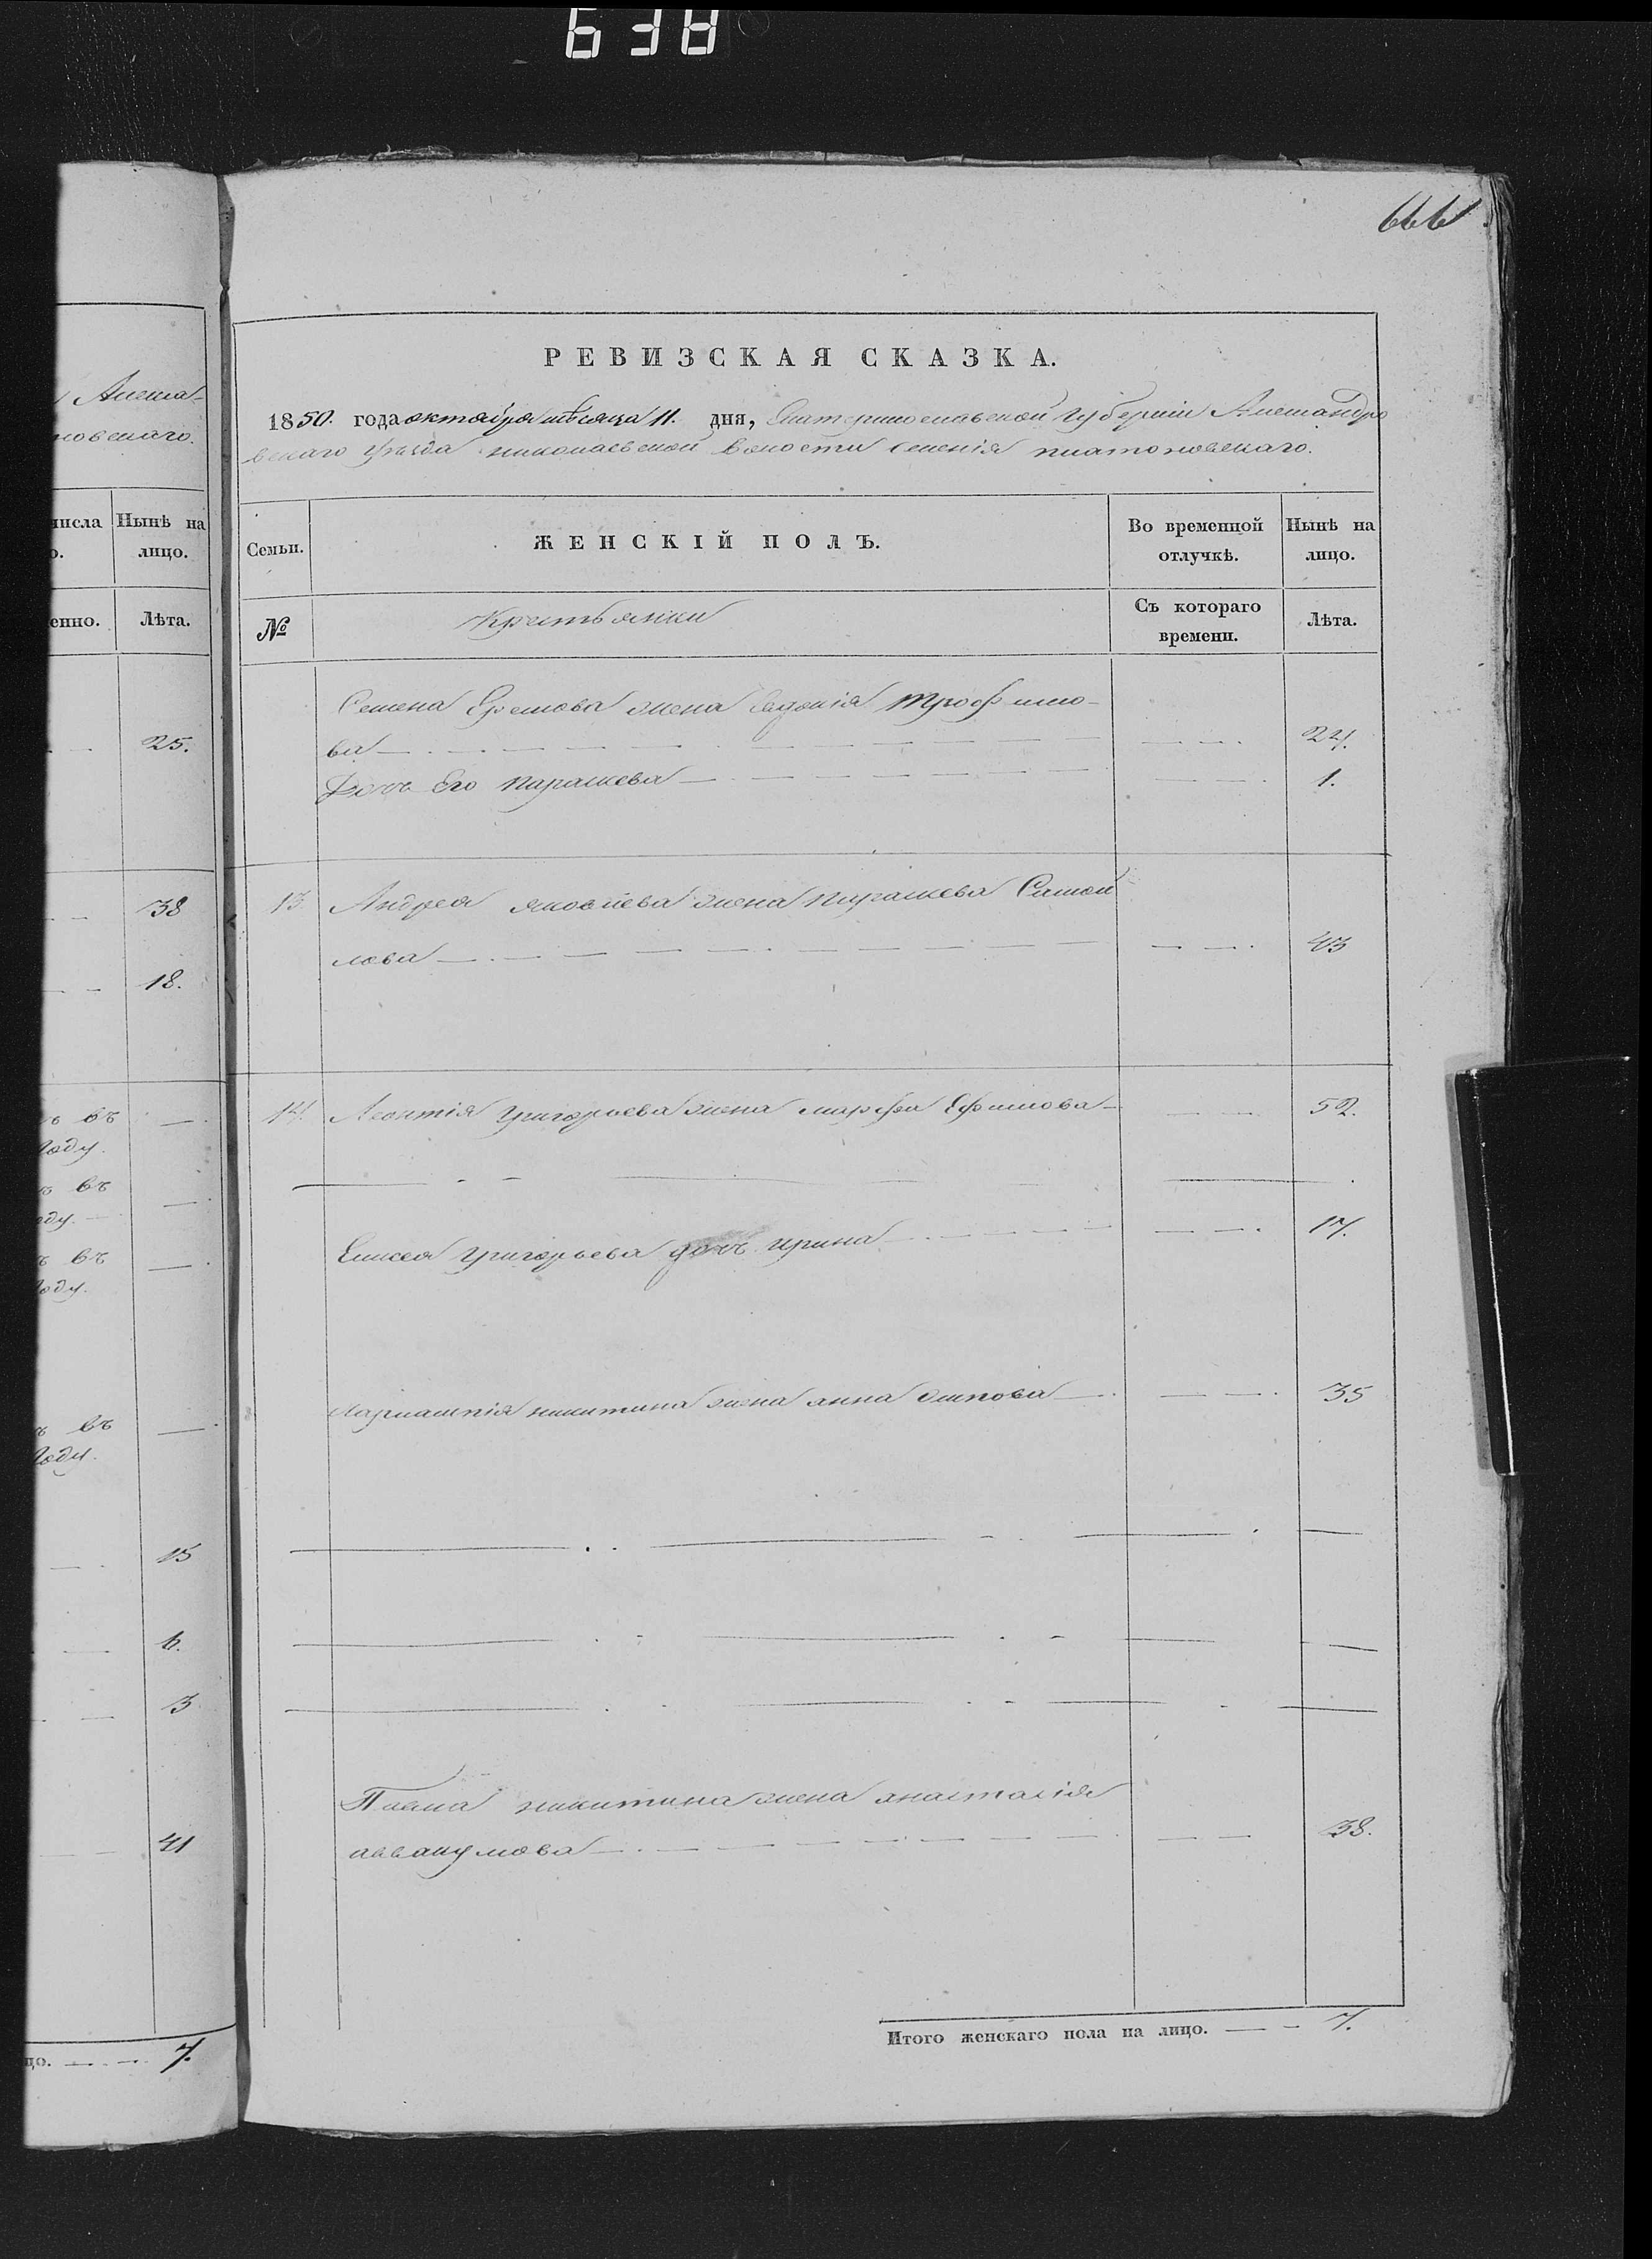 638
666
Алекса-
новскаго.
числа Нынѣ на
о. лицо.
енно. Лѣта.
25.
38
18.
въ
году.
въ
оду.
въ
году.
въ
году.
15
6.
3
41
цо. 7.
РЕВИЗСКАЯ СКАЗКА.
1850. года октября мѣсяца 11. дня, Екатеринославской Губерніи Александро
вскаго уѣзда николаевской волости селенія платоновскаго.
Семьи. ЖЕНСКІЙ ПОЛЪ. Во временной Нынѣ на
отлучкѣ. лицо.
№ Крестьянки Съ котораго Лѣта.
времени.
Семена Ефимова жена Евдокія Трофимо-
ва 24.
Дочь Его параскева 1.
13 Андрея яковлева жена параскева Самой
лова 43
14. Леонтія григорьева жена марфа Ефимова 52.
Елисея григорьева дочь ирина 17.
никитина жена анна осипова 35
Павла никитина жена анастасія
аввакумова 38.
Итого женскаго пола на лицо. 7.